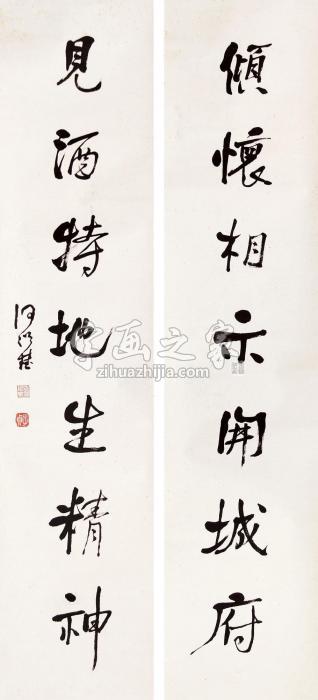 傾懷相示開城府
見酒特地生精神
字画之家
zihuazhijia.com